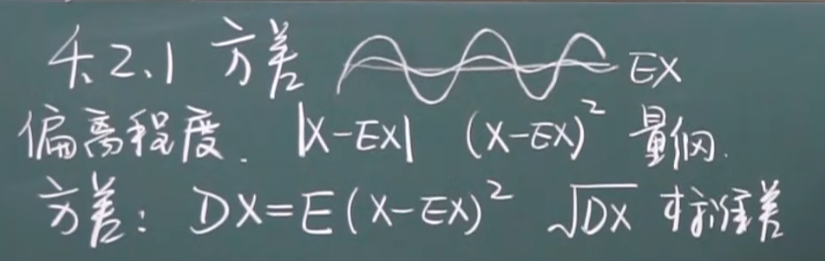 4.2.1 方差 EX
偏离程度. |X-EX| (X-EX)² 量纲.
方差: DX=E(X-EX)² √DX 标准差